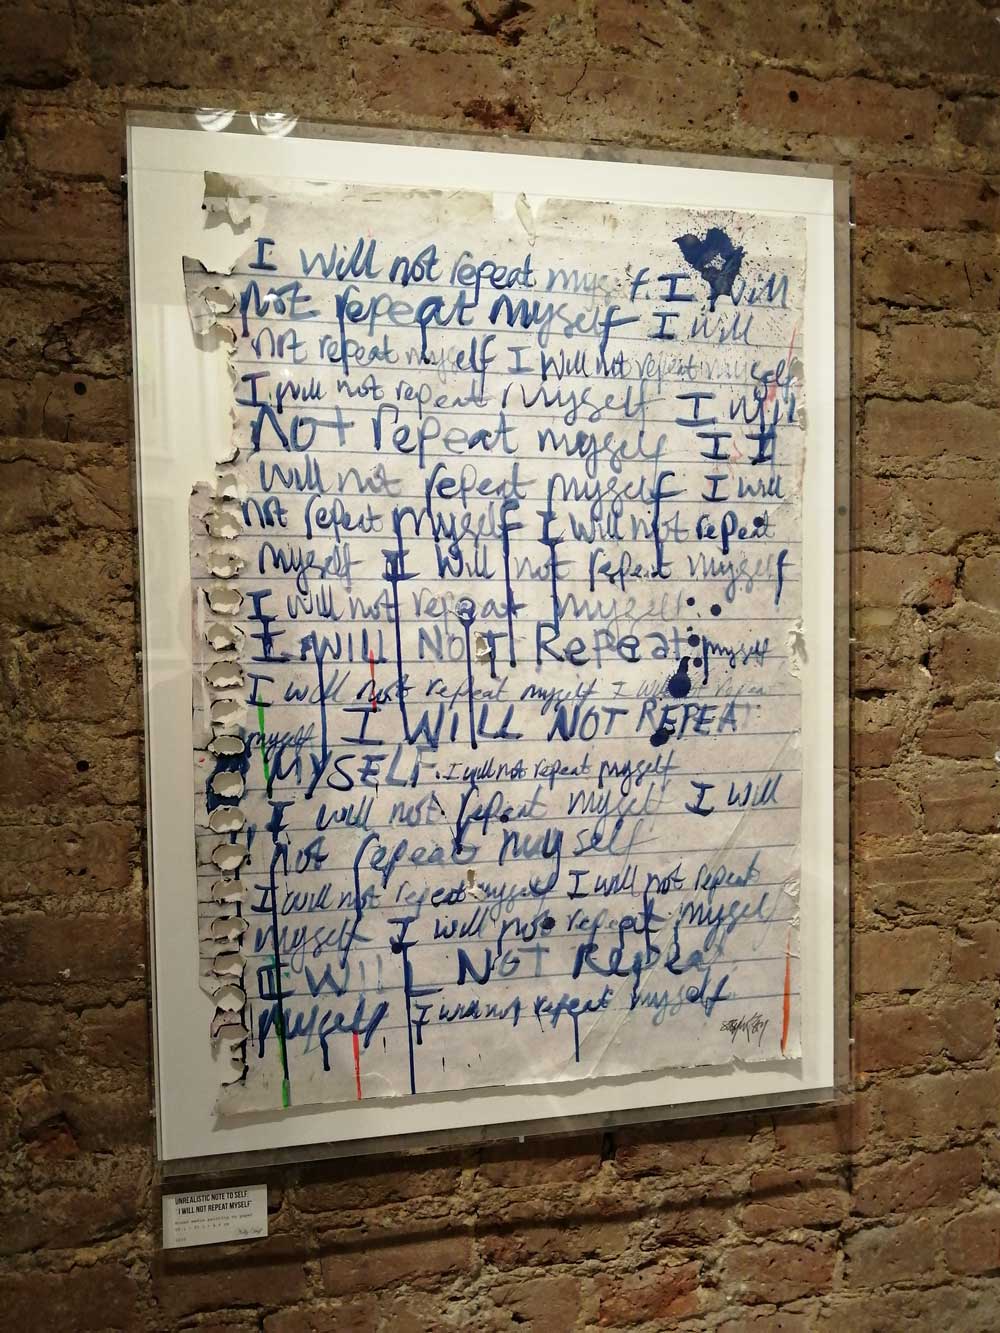 I will not repeat myself. I will
not repeat myself I will
not repeat myself I will not repeat myself
I will not repeat myself I will
Not repeat myself I I
will not repeat myself I will
not repeat myself I will not repeat
myself I will not repeat myself
I will not repeat myself
I WILL NOT Repeat myself
I will not repeat myself I will not repeat
myself I WILL NOT REPEAT
MYSELF. I will not repeat myself
I will not repeat myself I will
not repeat myself
I will not repeat myself I will not repeat
myself I will not repeat myself
I WILL NOT Repeat
myself I will not repeat myself
UNREALISTIC NOTE TO SELF
"I WILL NOT REPEAT MYSELF"
Mixed media painting on paper